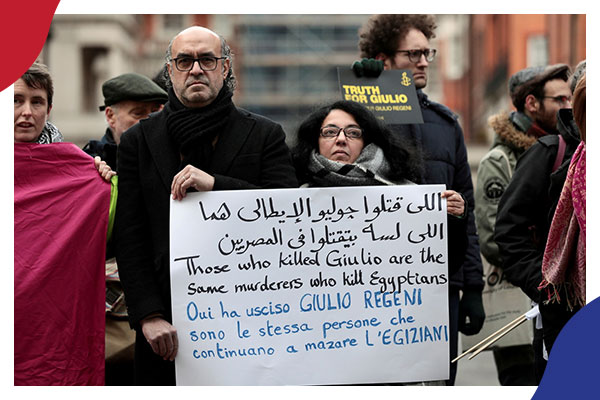 TRUTH
FOR GIULIO
اللى قتلوا جوليو الإيطالى هما
اللى لسه بيتقتلوا فى المصريين
Those who killed Giulio are the
same murderers who kill Egyptians
Oui ha usciso GIULIO REGENI
sono le stessa persone che
continuano a mazare L'EGIZIANI